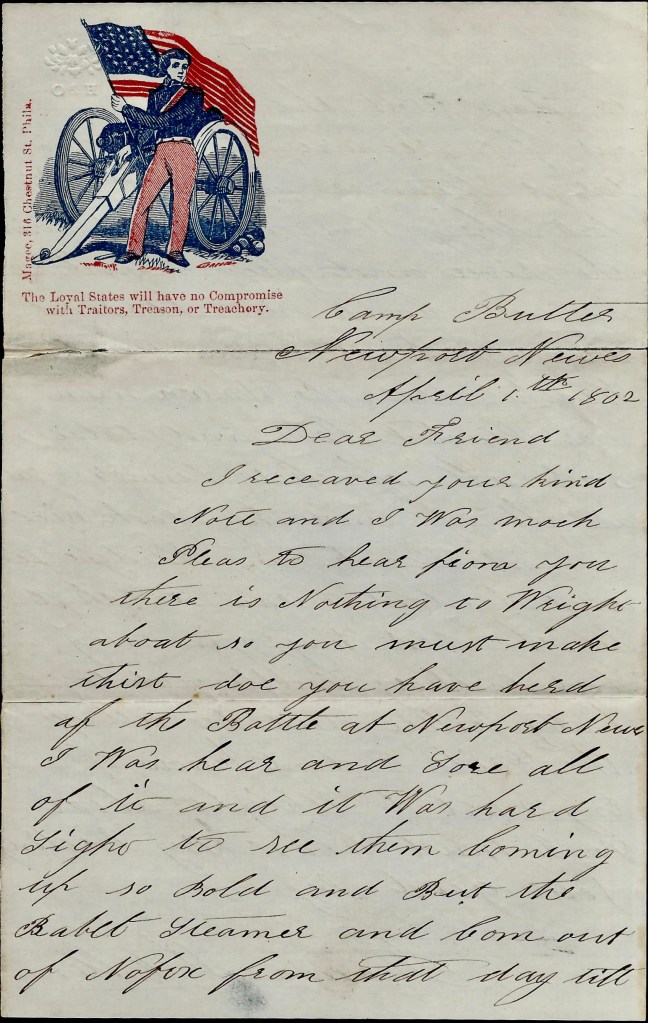 Magee, 316 Chestnut St. Phila.
The Loyal States will have no Compromise
with Traitors, Treason, or Treachery.
Camp Butler
Newport Newes
April 1th 1862
Dear Friend
I receaved your kind
Note and I Was moch
Pleas to hear from you
there is Nothing to Wright
aboat so you must make
thist doe you have herd
of the Battle at Newport News
I Was hear and Sore all
of it and it Was hard
Sight to see them Coming
up so Bold and But the
Steamer and Com out
of Nofox from that day till